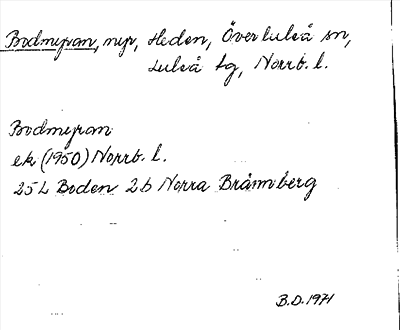 Bodmyran, myr, Heden, Överluleå sn,
Luleå tg, Norrb. l.
Bodmyran
ek (1950) Norrb. l.
25L Boden 2b Norra Brännberg
B.D. 1971